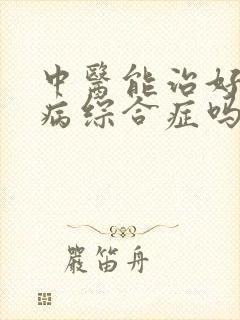 中醫能治好
病综合症吗
嚴笛舟